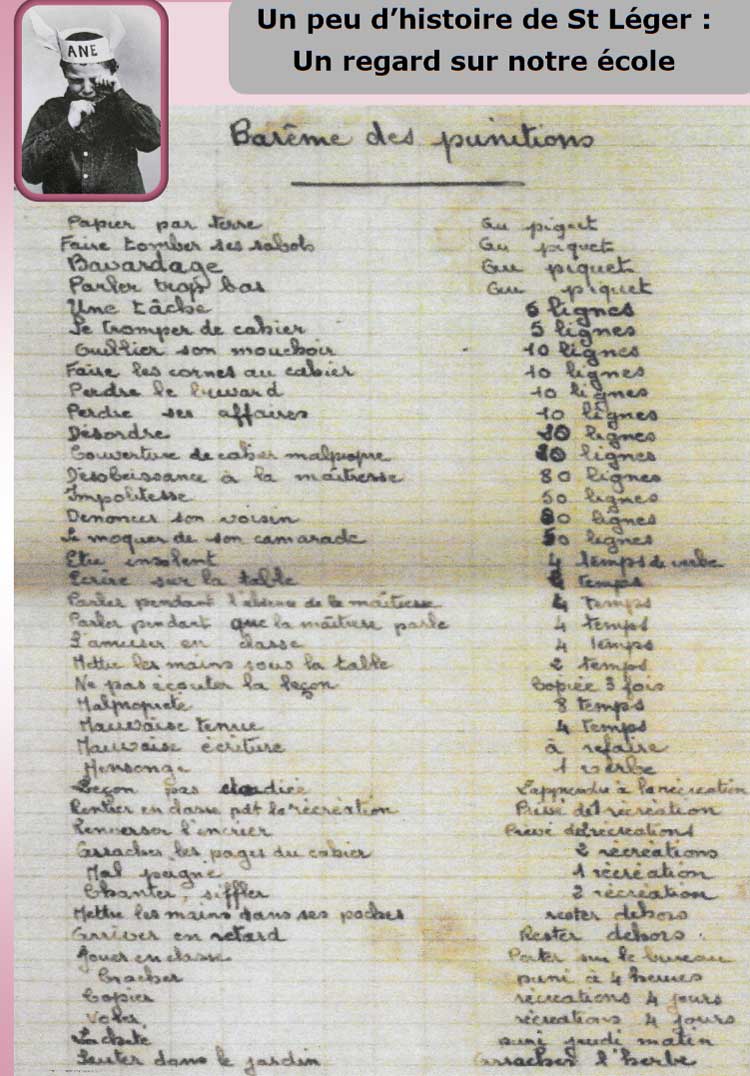 Un peu d'histoire de St Léger :
Un regard sur notre école
ANE
Barême des punitions
Papier par terre Au piquet
Faire tomber ses sabots Au piquet
Bavardage Au piquet
Parler trop bas Au piquet
Une tâche 5 lignes
Se tromper de cahier 5 lignes
Oublier son mouchoir 10 lignes
Faire les cornes au cahier 10 lignes
Perdre le buvard 10 lignes
Perdre ses affaires 10 lignes
Désordre lignes
Couverture de cahier malpropre lignes
Désobeissance à la maîtresse 80 lignes
Impolitesse 50 lignes
Denoncer son voisin lignes
Se moquer de son camarade 50 lignes
Etre insolent 4 temps de verbe
Ecrire sur la table temps
Parler pendant l'absence de la maîtresse 4 temps
Parler pendant que la maîtresse parle 4 temps
S'amuser en classe 4 temps
Mettre les mains sous la table 2 temps
Ne pas écouter la leçon Copiée 3 fois
Malpropreté 8 temps
Mauvaise tenue 4 temps
Mauvaise écriture à refaire
Mensonge 1 verbe
Leçon pas étudiée L'apprendre à la récréation
Rentrer en classe pdt la récréation Privé de 1 récréation
Renverser l'encrier Privé de récréations
Arracher les pages du cahier 2 récréations
Mal peigné 1 récréation
Chanter, siffler 2 récréation
Mettre les mains dans ses poches rester dehors
Arriver en retard Rester dehors
Jouer en classe Porter sur le bureau
Cracher puni à 4 heures
Copier récréations 4 jours
Voler récréations 4 jours
Lacheté puni jeudi matin
Sauter dans le jardin Arracher l'herbe